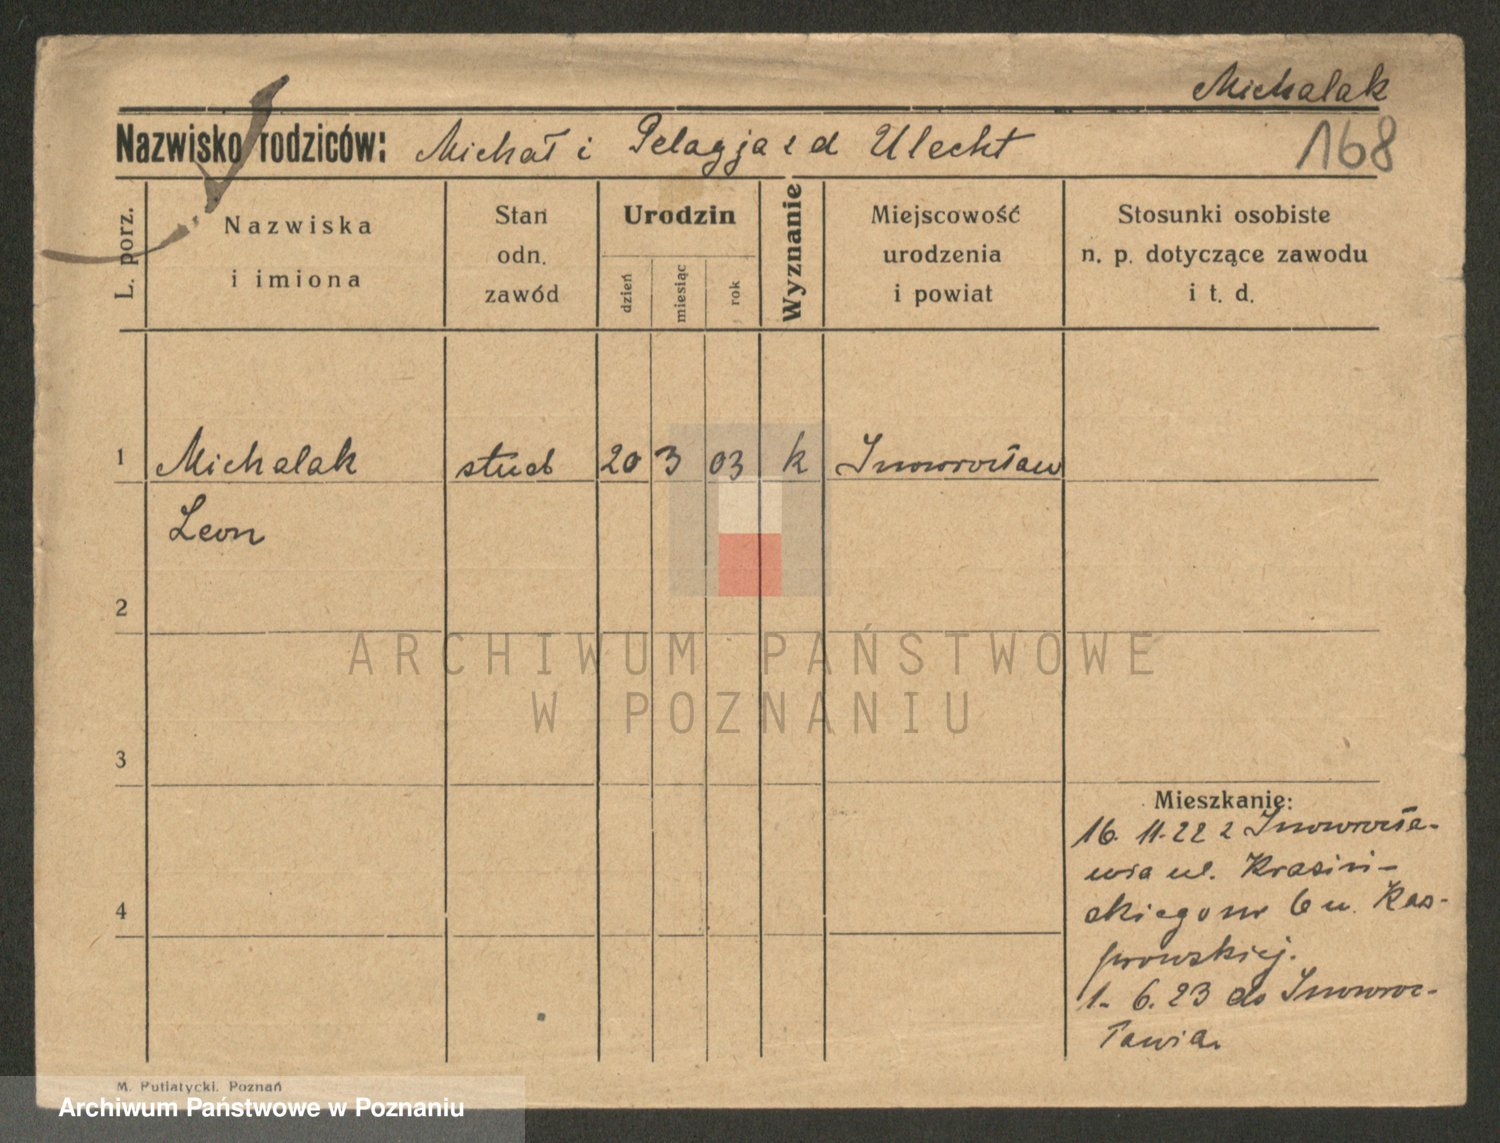 Michalak
Nazwisko rodziców: Michał i Pelagja z d Ulecht
168
L. porz.
Nazwiska
i imiona
Stan
odn.
zawód
Urodzin
dzień
miesiąc
rok
Wyznanie
Miejscowość
urodzenia
i powiat
Stosunki osobiste
n. p. dotyczące zawodu
i t. d.
1 Michalak stud 20 3 03 k Inowrocław
Leon
2
ARCHIWUM PAŃSTWOWE
W POZNANIU
3
Mieszkanie:
16. 11. 22 z Inowrocła-
wia ul. Krasiń-
skiego nr 6 u. Kas-
prowskiej.
4
1. 6. 23 do Inowroc-
ławia.
M. Putiatycki, Poznań
Archiwum Państwowe w Poznaniu